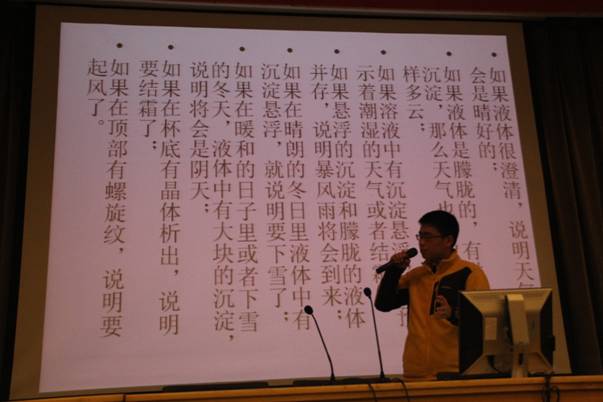 如果液体很澄清，说明天气
会是晴好的；
如果液体是朦胧的，有
沉淀，那么天气也
样多云；
如果溶液中有沉淀悬浮
示着潮湿的天气或者结
如果悬浮的沉淀和朦胧的液体
并存，说明暴风雨将会到来；
如果在晴朗的冬日里液体中有
沉淀悬浮，就说明要下雪了；
如果在暖和的日子里或者下雪
的冬天，液体中有大块的沉淀，
说明将会是阴天；
如果在杯底有晶体析出，说明
要结霜了；
如果在顶部有螺旋纹，说明要
起风了。